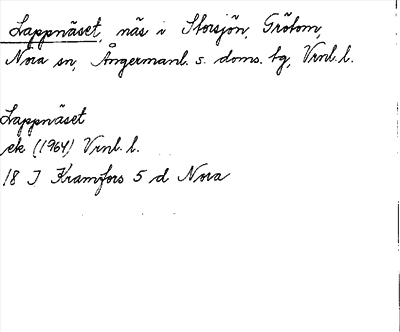 Lappnäset, näs i Storsjön, Grötom,
Nora sn, Ångermanl. s. doms. tg, Vrnl. l.
Lappnäset
ek (1964) Vrnl. l.
18 J Kramfors 5 d Nora